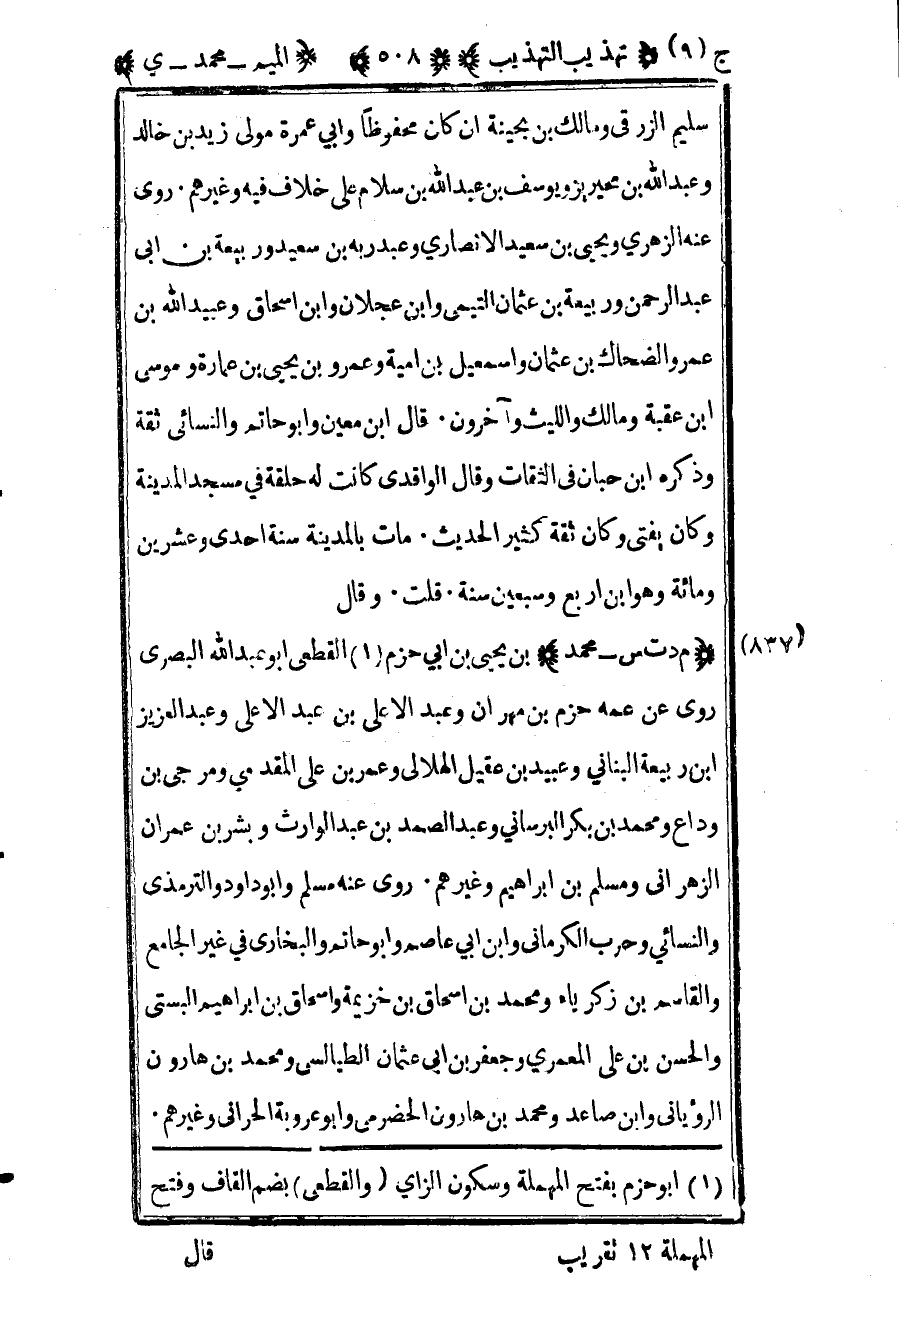 ج (٩) ﴿ تهذيب التهذيب ﴾ ﴿ ٥٠٨ ﴾ ﴿ الميم ـ محمد ـ ي ﴾
سليم الزرقى ومالك بن بحينة ان كان محفوظاً وابي عمرة مولى زيد بن خالد
وعبدالله بن محيريز ويوسف بن عبدالله بن سلام على خلاف فيه وغيرهم · روى
عنه الزهري ويحيى بن سعيد الانصاري وعبدربه بن سعيد وربيعة بن ابى
عبدالرحمن وربيعة بن عثمان التيمى وابن عجلان وابن اسحاق وعبيدالله بن
عمر والضحاك بن عثمان واسمعيل بن امية وعمرو بن يحيى بن عمارة وموسى
ابن عقبة ومالك والليث وآخرون · قال ابن معين وابوحاتم والنسائى ثقة
وذكره ابن حبان فى الثقات وقال الواقدى كانت له حلقة في مسجد المدينة
وكان يفتى وكان ثقة كثير الحديث · مات بالمدينة سنة احدى وعشرين
ومائة وهو ابن اربع وسبعين سنة · قلت · وقال
﴿ م د ت س ـ محمد ﴾ بن يحيى بن ابي حزم (١) القطعى ابوعبدالله البصرى (٨٣٧)
روى عن عمه حزم بن مهران وعبد الاعلى بن عبد الاعلى وعبدالعزيز
ابن ربيعة البناني وعبيد بن عقيل الهلالى وعمر بن على المقدمي ومرجى بن
وداع ومحمد بن بكر البرساني وعبدالصمد بن عبدالوارث وبشر بن عمران
الزهرانى ومسلم بن ابراهيم وغيرهم · روى عنه مسلم وابوداود والترمذى
والنسائي وحرب الكرمانى وابن ابي عاصم وابوحاتم والبخارى في غير الجامع
والقاسم بن زكرياء ومحمد بن اسحاق بن خزيمة واسحاق بن ابراهيم البستى
والحسن بن على المعمري وجعفر بن ابى عثمان الطيالسى ومحمد بن هارون
الرؤيانى وابن صاعد ومحمد بن هارون الحضرمى وابوعروبة الحرانى وغيرهم ·
(١) ابوحزم بفتح المهملة وسكون الزاي (والقطعى) بضم القاف وفتح
المهملة ١٢ تقريب
قال